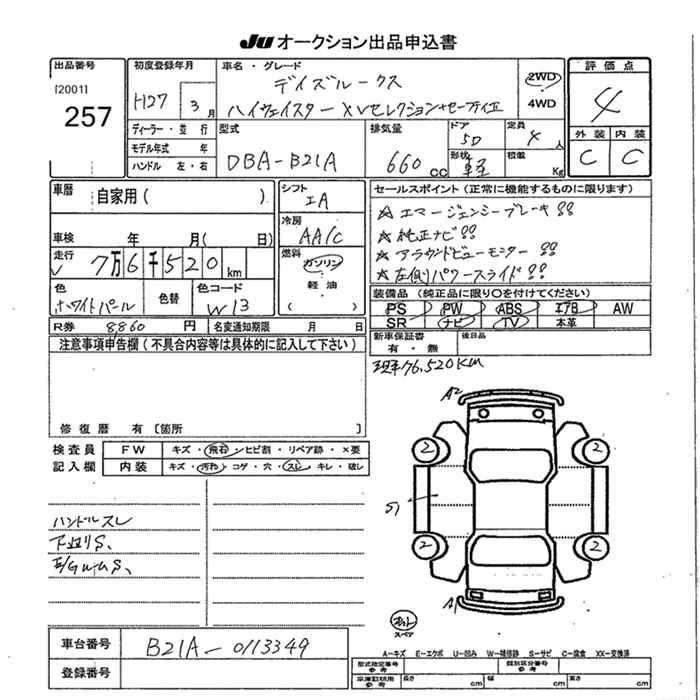 JU オークション出品申込書
出品番号 初度登録年月 車名・グレード 評価点
[2001] H27 3月 デイズルークス 2WD 4
257 ハイウェイスター XVセレクション+セーフティII 4WD
ディーラー・並行 型式 排気量 ドア 定員 外装 内装
モデル年式 年 DBA-B21A 660cc 5D 4人 C C
ハンドル 左・右 形状 軽 積載 Kg
車歴 自家用( ) シフト IA セールスポイント(正常に機能するものに限ります)
冷房 AAC ☆エマージェンシーブレーキ!!
車検 年 月( 日) ☆純正ナビ!!
走行 7万6千520km 燃料 ガソリン ☆アラウンドビューモニター!!
軽油 ☆左側パワースライド!!
色 ホワイトパール 色替 色コード W13 ( )
装備品(純正品に限り○を付けてください)
PS PW ABS エアB AW
R券 8860円 名変通知期限 月 日 SR ナビ TV 本革
注意事項申告欄(不具合内容等は具体的に記入して下さい) 新車保証書 有・無 後日品
現車76,520KM
修復歴 有[箇所 ]
検査員 FW キズ・飛石・ヒビ割・リペア跡・×要
記入欄 内装 キズ・汚れ・コゲ・穴・スレ・キレ・破レ
A2
2 2
ハンドルスレ
下廻りS、
2 2
A1
スペア
車台番号 B21A-0113349
A-キズ E-エクボ U-凹み W-補修跡 S-サビ C-腐食 XX-交換済
登録番号 型式指定番号 参考 類別区分番号 参考
車庫証明用 参考 長さ cm 幅 cm 高さ cm